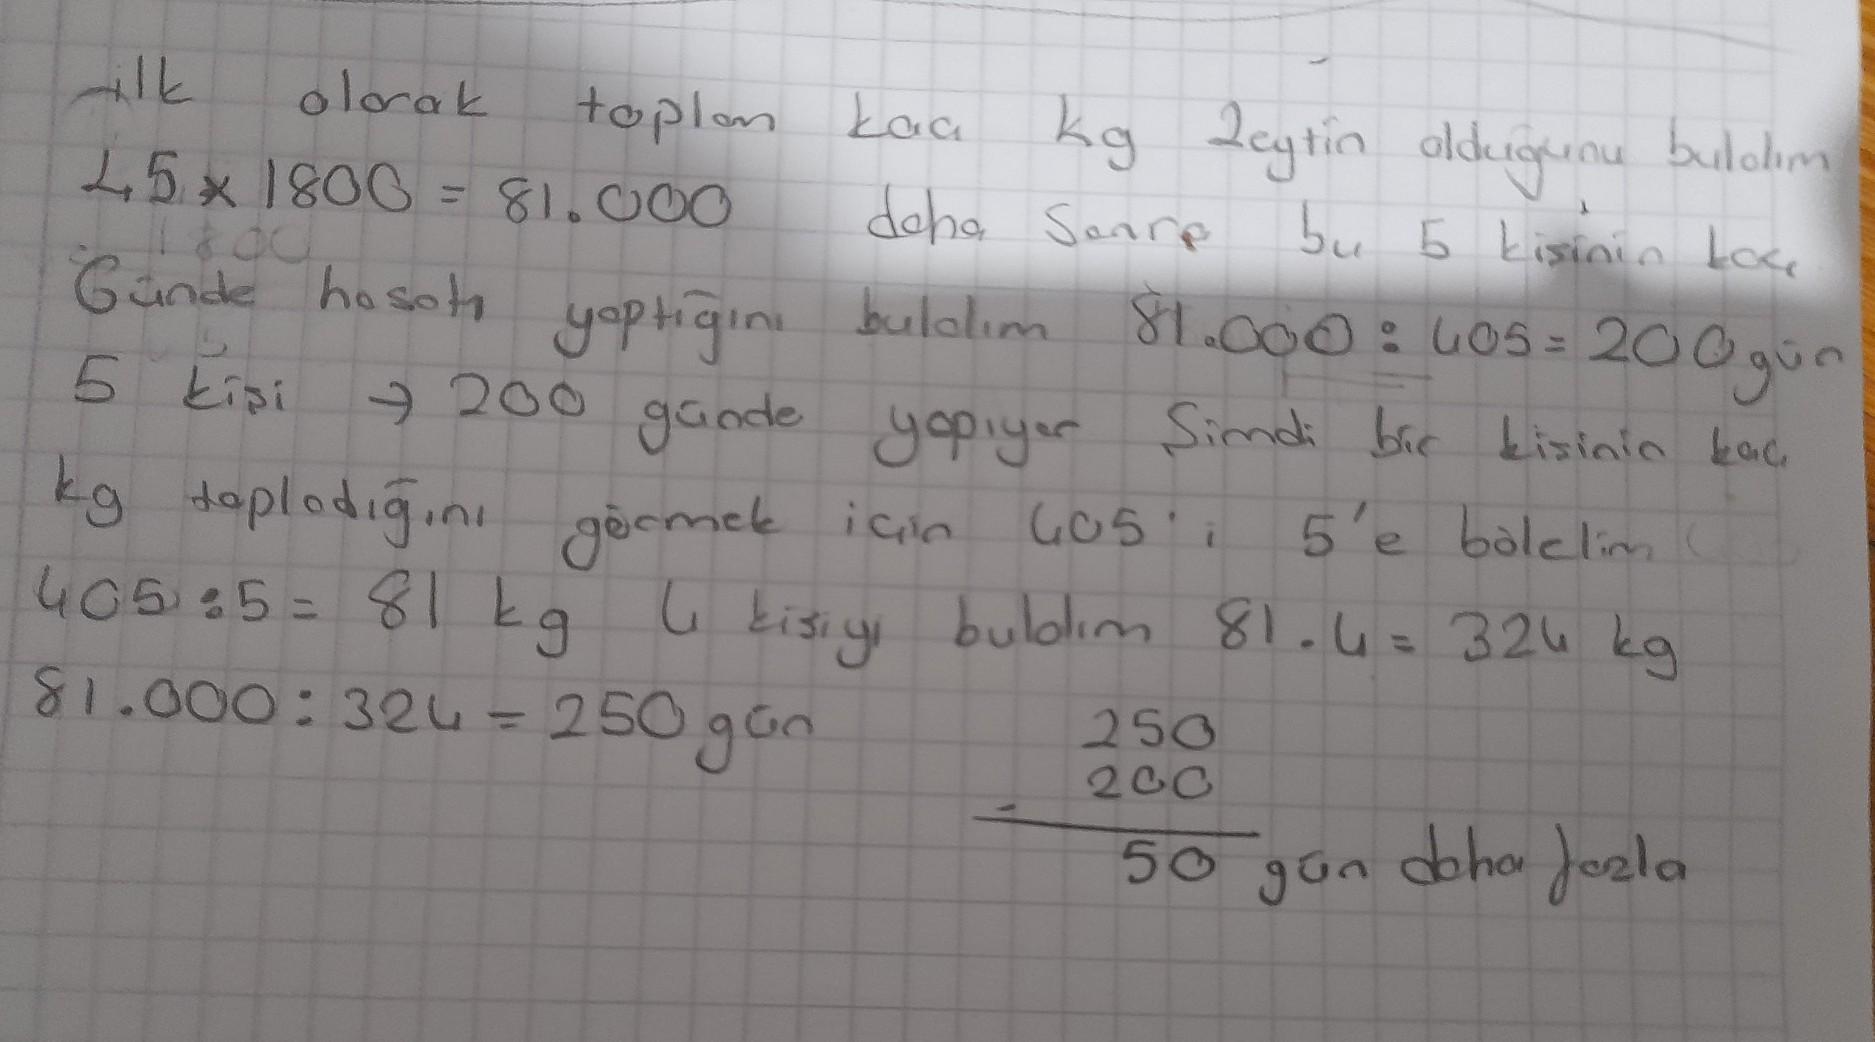 ilk olarak toplam kaç kg Zeytin olduğunu buldum
45 x 1800 = 81.000 daha Sonra bu 5 kişinin kaç
1800
Günde hasatı yaptığını buldum 81.000 : 405 = 200 gün
5 kişi → 200 günde yapıyor Şimdi bir kişinin kaç
kg topladığını görmek için 405'i 5'e bölelim
405 : 5 = 81 kg 4 kişiyi buldum 81.4 = 324 kg
81.000 : 324 = 250 gün
250
- 200
50 gün daha fazla